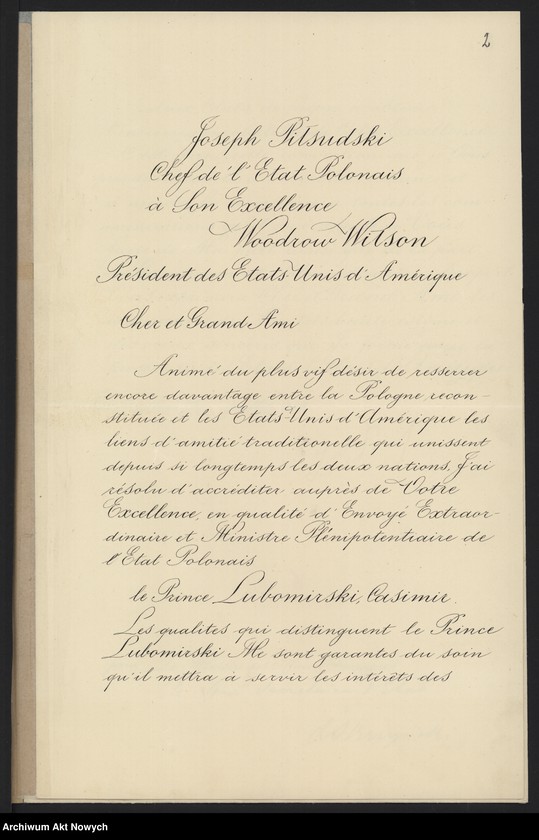 2
Joseph Piłsudski
Chef de l'Etat Polonais
à Son Excellence
Woodrow Wilson
Président des Etats-Unis d'Amérique
Cher et Grand Ami
Animé du plus vif désir de resserrer
encore davantage entre la Pologne recon-
stituée et les Etats-Unis d'Amérique les
liens d'amitié traditionelle qui unissent
depuis si longtemps les deux nations, J'ai
résolu d'accréditer auprès de Votre
Excellence, en qualité d'Envoyé Extraor-
dinaire et Ministre Plénipotentiaire de
l'Etat Polonais
le Prince Lubomirski, Casimir.
Les qualités qui distinguent le Prince
Lubomirski Me sont garantes du soin
qu'il mettra à servir les intérêts des
Archiwum Akt Nowych